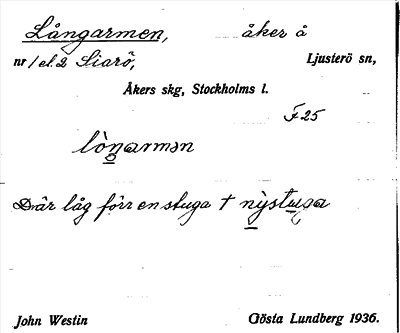 Långarmen, åker å
nr 1 el. 2 Siarö, Ljusterö sn,
Åkers skg, Stockholms l.
F 25
lòngarmən
Där låg förr en stuga † nỳstuga
John Westin Gösta Lundberg 1936.